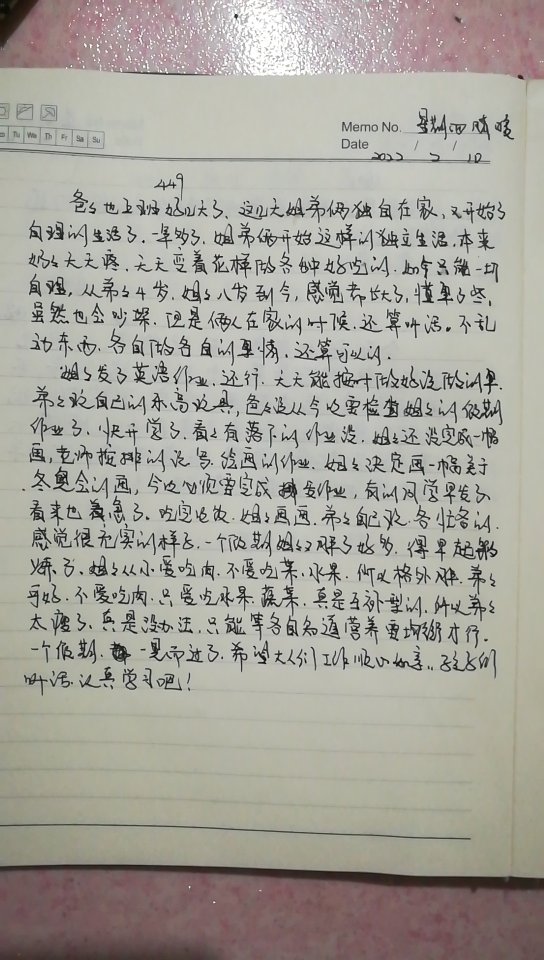 Tu We Th Fr Sa Su
Memo No. 星期四 晴暖
Date 2022 / 2 / 10
449
爸爸也上班好几天了、这几天姐弟俩独自在家、又开始了
自理的生活了.一年多了.姐弟俩开始这样的独立生活.本来
奶奶天天疼.天天变着花样做各种好吃的.如今只能一切
自理,从弟弟4岁.姐姐八岁到今,感觉都长大了,懂事了些,
虽然也会吵架.但是俩人在家的时候.还算听话。不乱
动东西.各自做各自的事情.还算可以的.
姐姐发了英语作业.还行.天天能按时做好没做的事.
弟弟玩自己的乐高玩具,爸爸说从今晚要检查姐姐的假期
作业了、快开学了.看看有落下的作业没.姐姐还没完成一幅
画,老师按排的说写绘画的作业.姐姐决定画一幅关于
冬奥会的画,今晚必须要完成 作业,有的同学早发了
看来也着急了。吃完晚饭.姐姐画画.弟弟自己玩.各忙各的.
感觉很充实的样子.一个假期姐姐又胖了好多.得早起锻
炼了、姐姐从小爱吃肉.不爱吃菜、水果.所以格外胖.弟弟
可好.不爱吃肉.只爱吃水果.蔬菜.真是互补型的.所以弟弟
太瘦了、真是没办法.只能等各自知道营养要均衡才行.
一个假期. 一晃而过了.希望大人们工作顺心如意..孩子们
听话.认真学习吧!